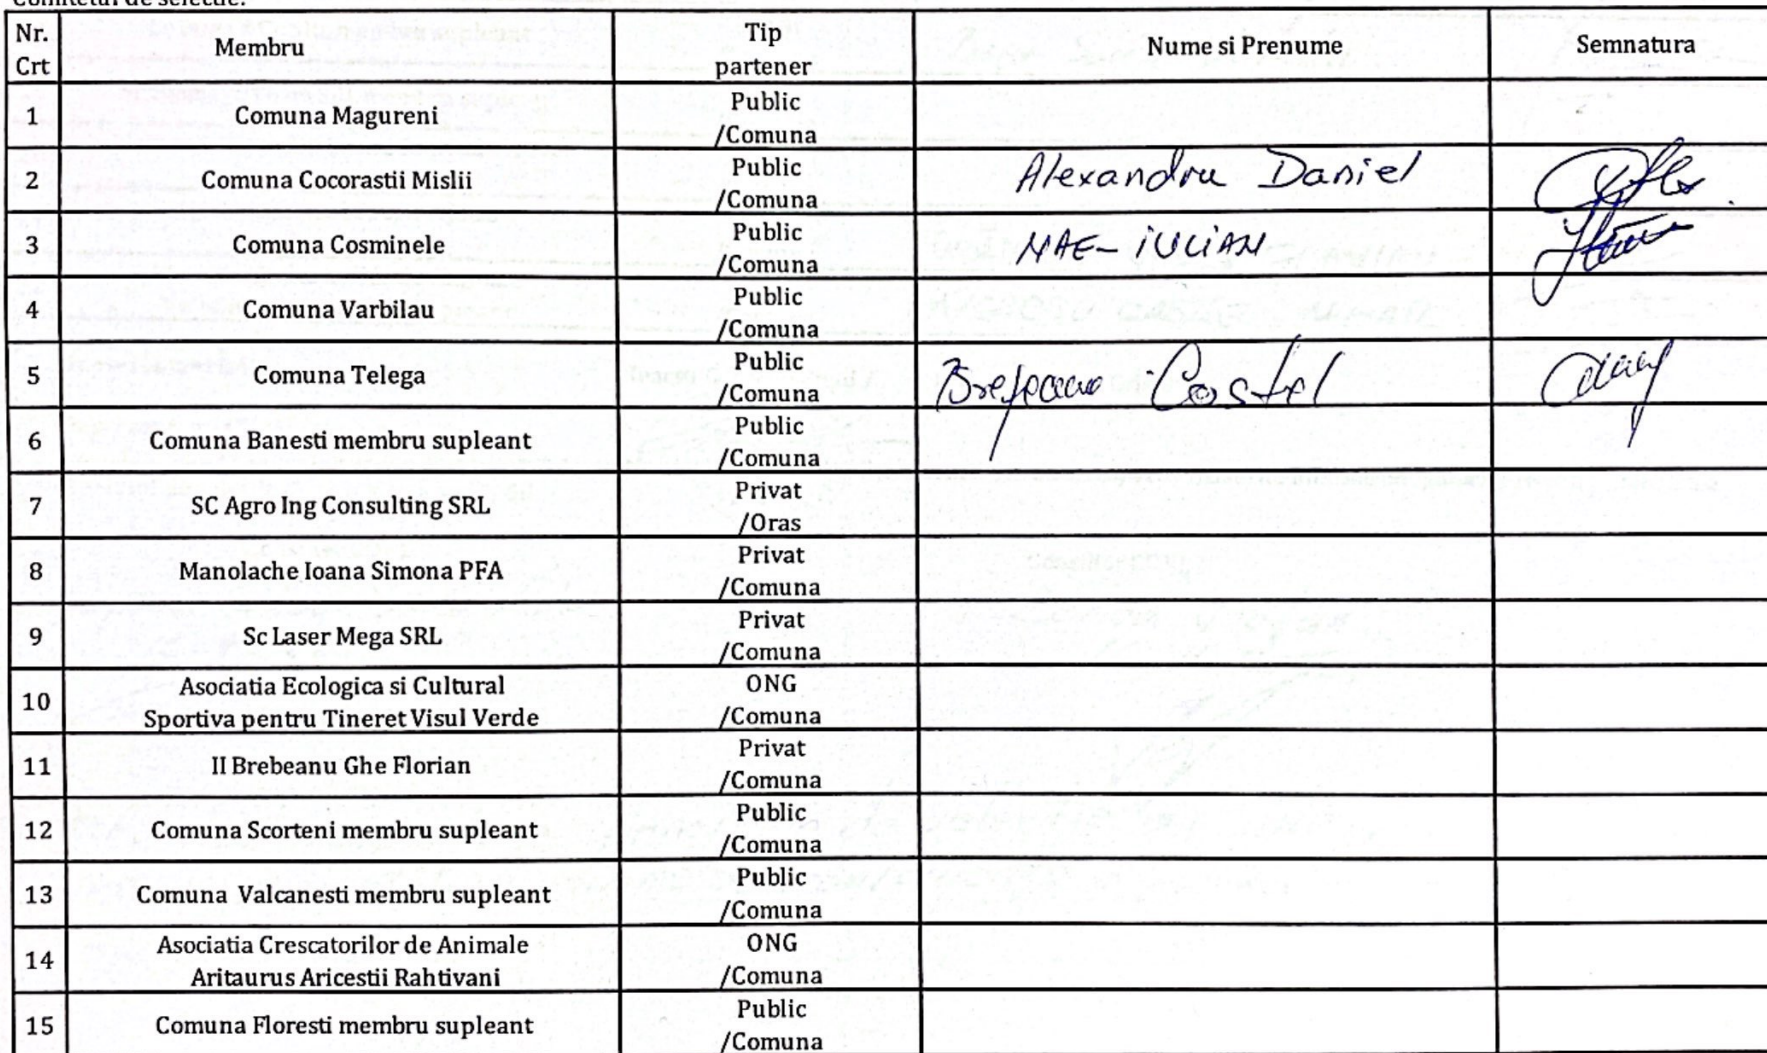 Comitetul de selectie:
Nr. Crt Membru Tip partener Nume si Prenume Semnatura
1 Comuna Magureni Public /Comuna
2 Comuna Cocorastii Mislii Public /Comuna Alexandru Daniel
3 Comuna Cosminele Public /Comuna NAE-IULIAN
4 Comuna Varbilau Public /Comuna
5 Comuna Telega Public /Comuna Costel
6 Comuna Banesti membru supleant Public /Comuna
7 SC Agro Ing Consulting SRL Privat /Oras
8 Manolache Ioana Simona PFA Privat /Comuna
9 Sc Laser Mega SRL Privat /Comuna
10 Asociatia Ecologica si Cultural Sportiva pentru Tineret Visul Verde ONG /Comuna
11 II Brebeanu Ghe Florian Privat /Comuna
12 Comuna Scorteni membru supleant Public /Comuna
13 Comuna Valcanesti membru supleant Public /Comuna
14 Asociatia Crescatorilor de Animale Aritaurus Aricestii Rahtivani ONG /Comuna
15 Comuna Floresti membru supleant Public /Comuna